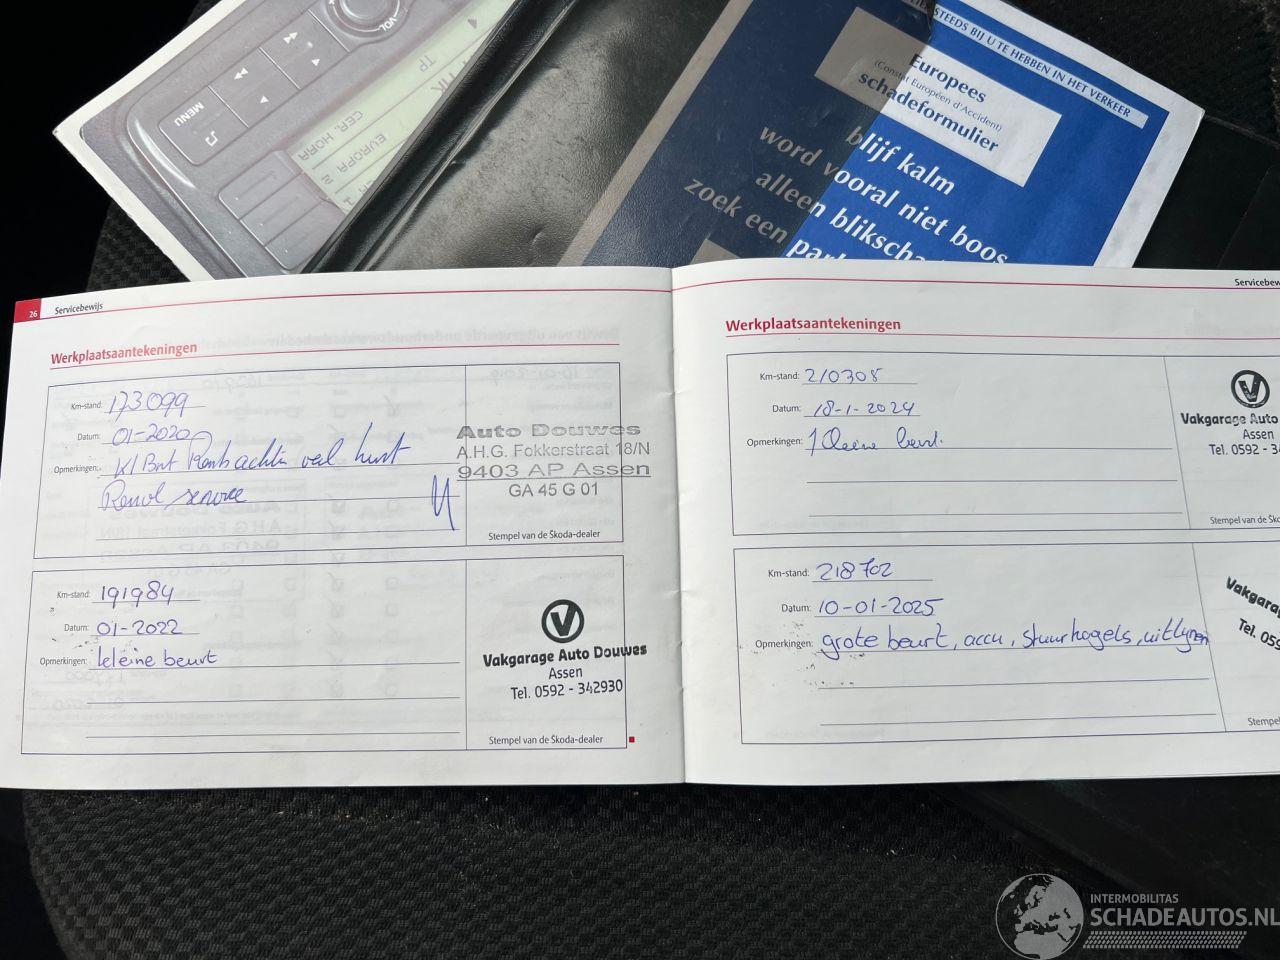 MENU
VOL
TP
CER. HORA
EUROPA
STEEDS BIJ U TE HEBBEN IN HET VERKEER
Europees
(Constat Européen d'Accident)
schadeformulier
blijf kalm
word vooral niet boos
alleen blikscha
zoek een
par
26 Servicebewijs
Werkplaatsaantekeningen
Km-stand: 173099
Datum: 01-2020
Opmerkingen: Kl Brt
service
Auto Douwes
A.H.G. Fokkerstraat 18/N
9403 AP Assen
GA 45 G 01
Stempel van de Škoda-dealer
Km-stand: 191984
Datum: 01-2022
Opmerkingen: kleine beurt
Vakgarage Auto Douwes
Assen
Tel. 0592 - 342930
Stempel van de Škoda-dealer
Servicebew
Werkplaatsaantekeningen
Km-stand: 210308
Datum: 18-1-2024
Opmerkingen: 1 Kleine beurt.
Vakgarage Auto
Assen
Tel. 0592 - 34
Stempel van de Šk
Km-stand: 218702
Datum: 10-01-2025
Opmerkingen: grote beurt, accu, stuurkogels, uitlijnen
Vakgara
Tel. 059
Stempel
INTERMOBILITAS
SCHADEAUTOS.NL